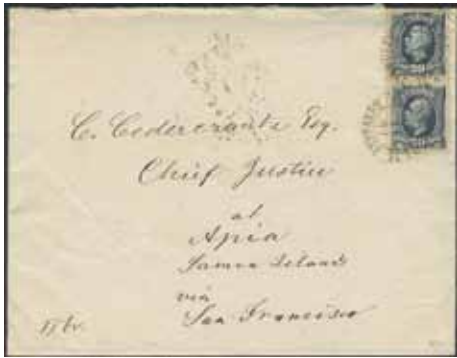 C. Cedercrantz Esq.
Chief Justice
at
Apia
Samoa Islands
via
San Francisco
20
20